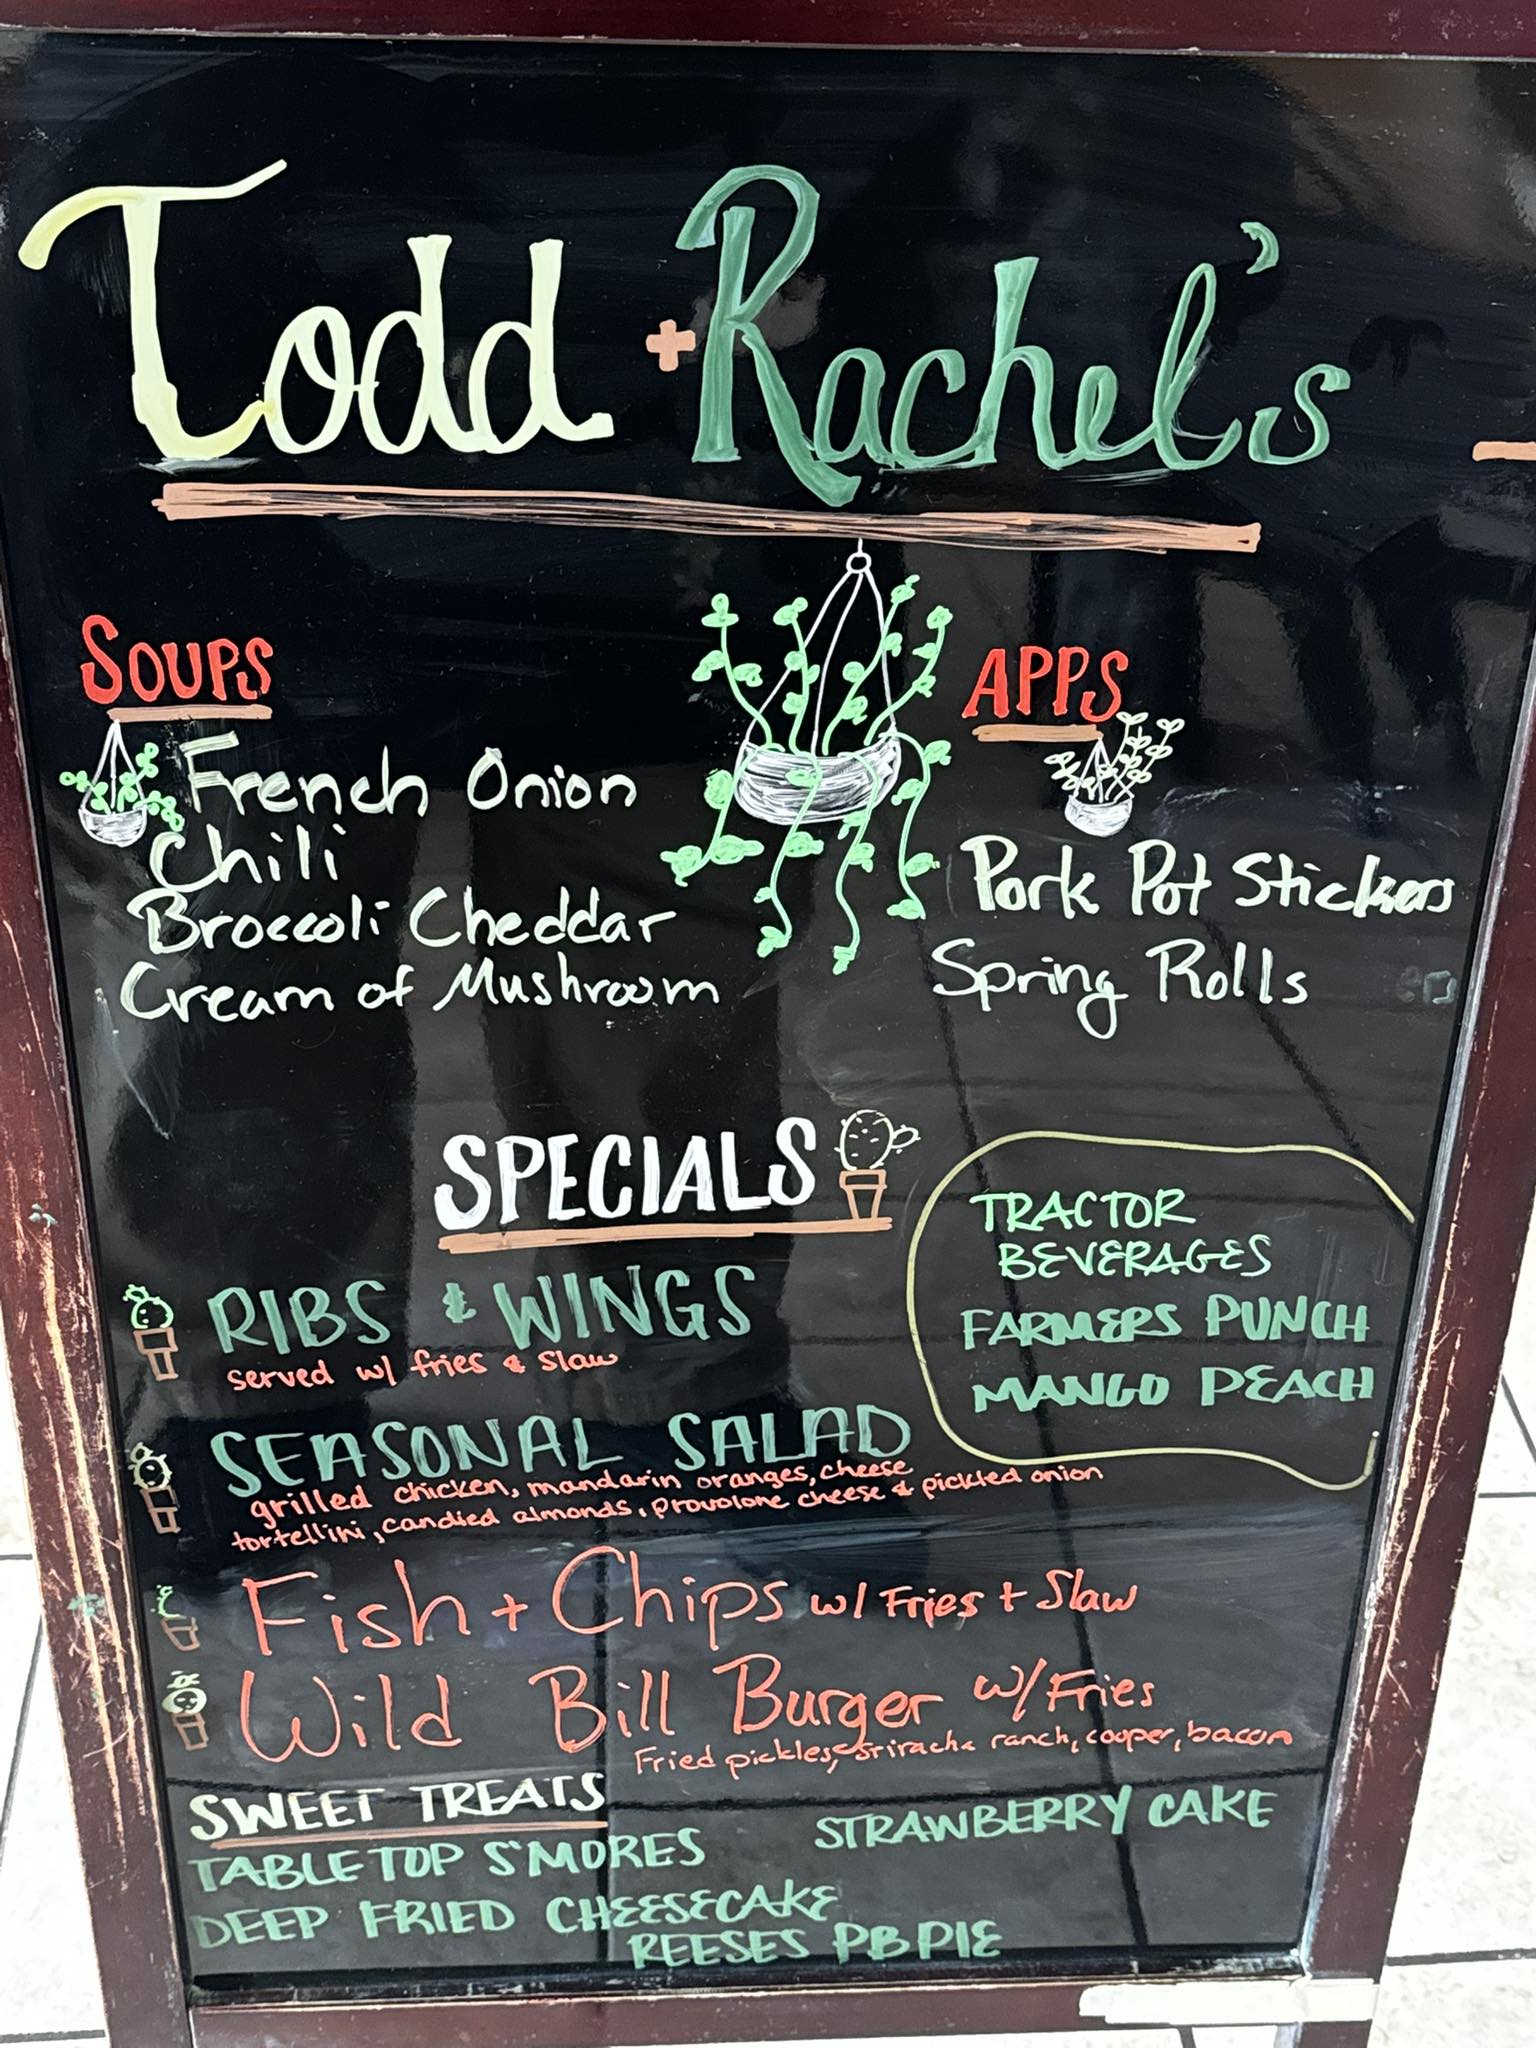 Todd + Rachel's
SOUPS
French Onion
Chili
Broccoli Cheddar
Cream of Mushroom
APPS
Pork Pot Stickers
Spring Rolls
ers
SPECIALS
RIBS & WINGS
served w/ fries & slaw
SEASONAL SALAD
grilled chicken, mandarin oranges, cheese
tortellini, candied almonds, provolone cheese & pickled onion
Fish + Chips w/ Fries + Slaw
Wild Bill Burger w/ Fries
Fried pickles, sriracha ranch, cooper, bacon
TRACTOR
BEVERAGES
FARMERS PUNCH
MANGO PEACH
SWEET TREATS
TABLETOP S'MORES
STRAWBERRY CAKE
DEEP FRIED CHEESECAKE
REESES PB PIE